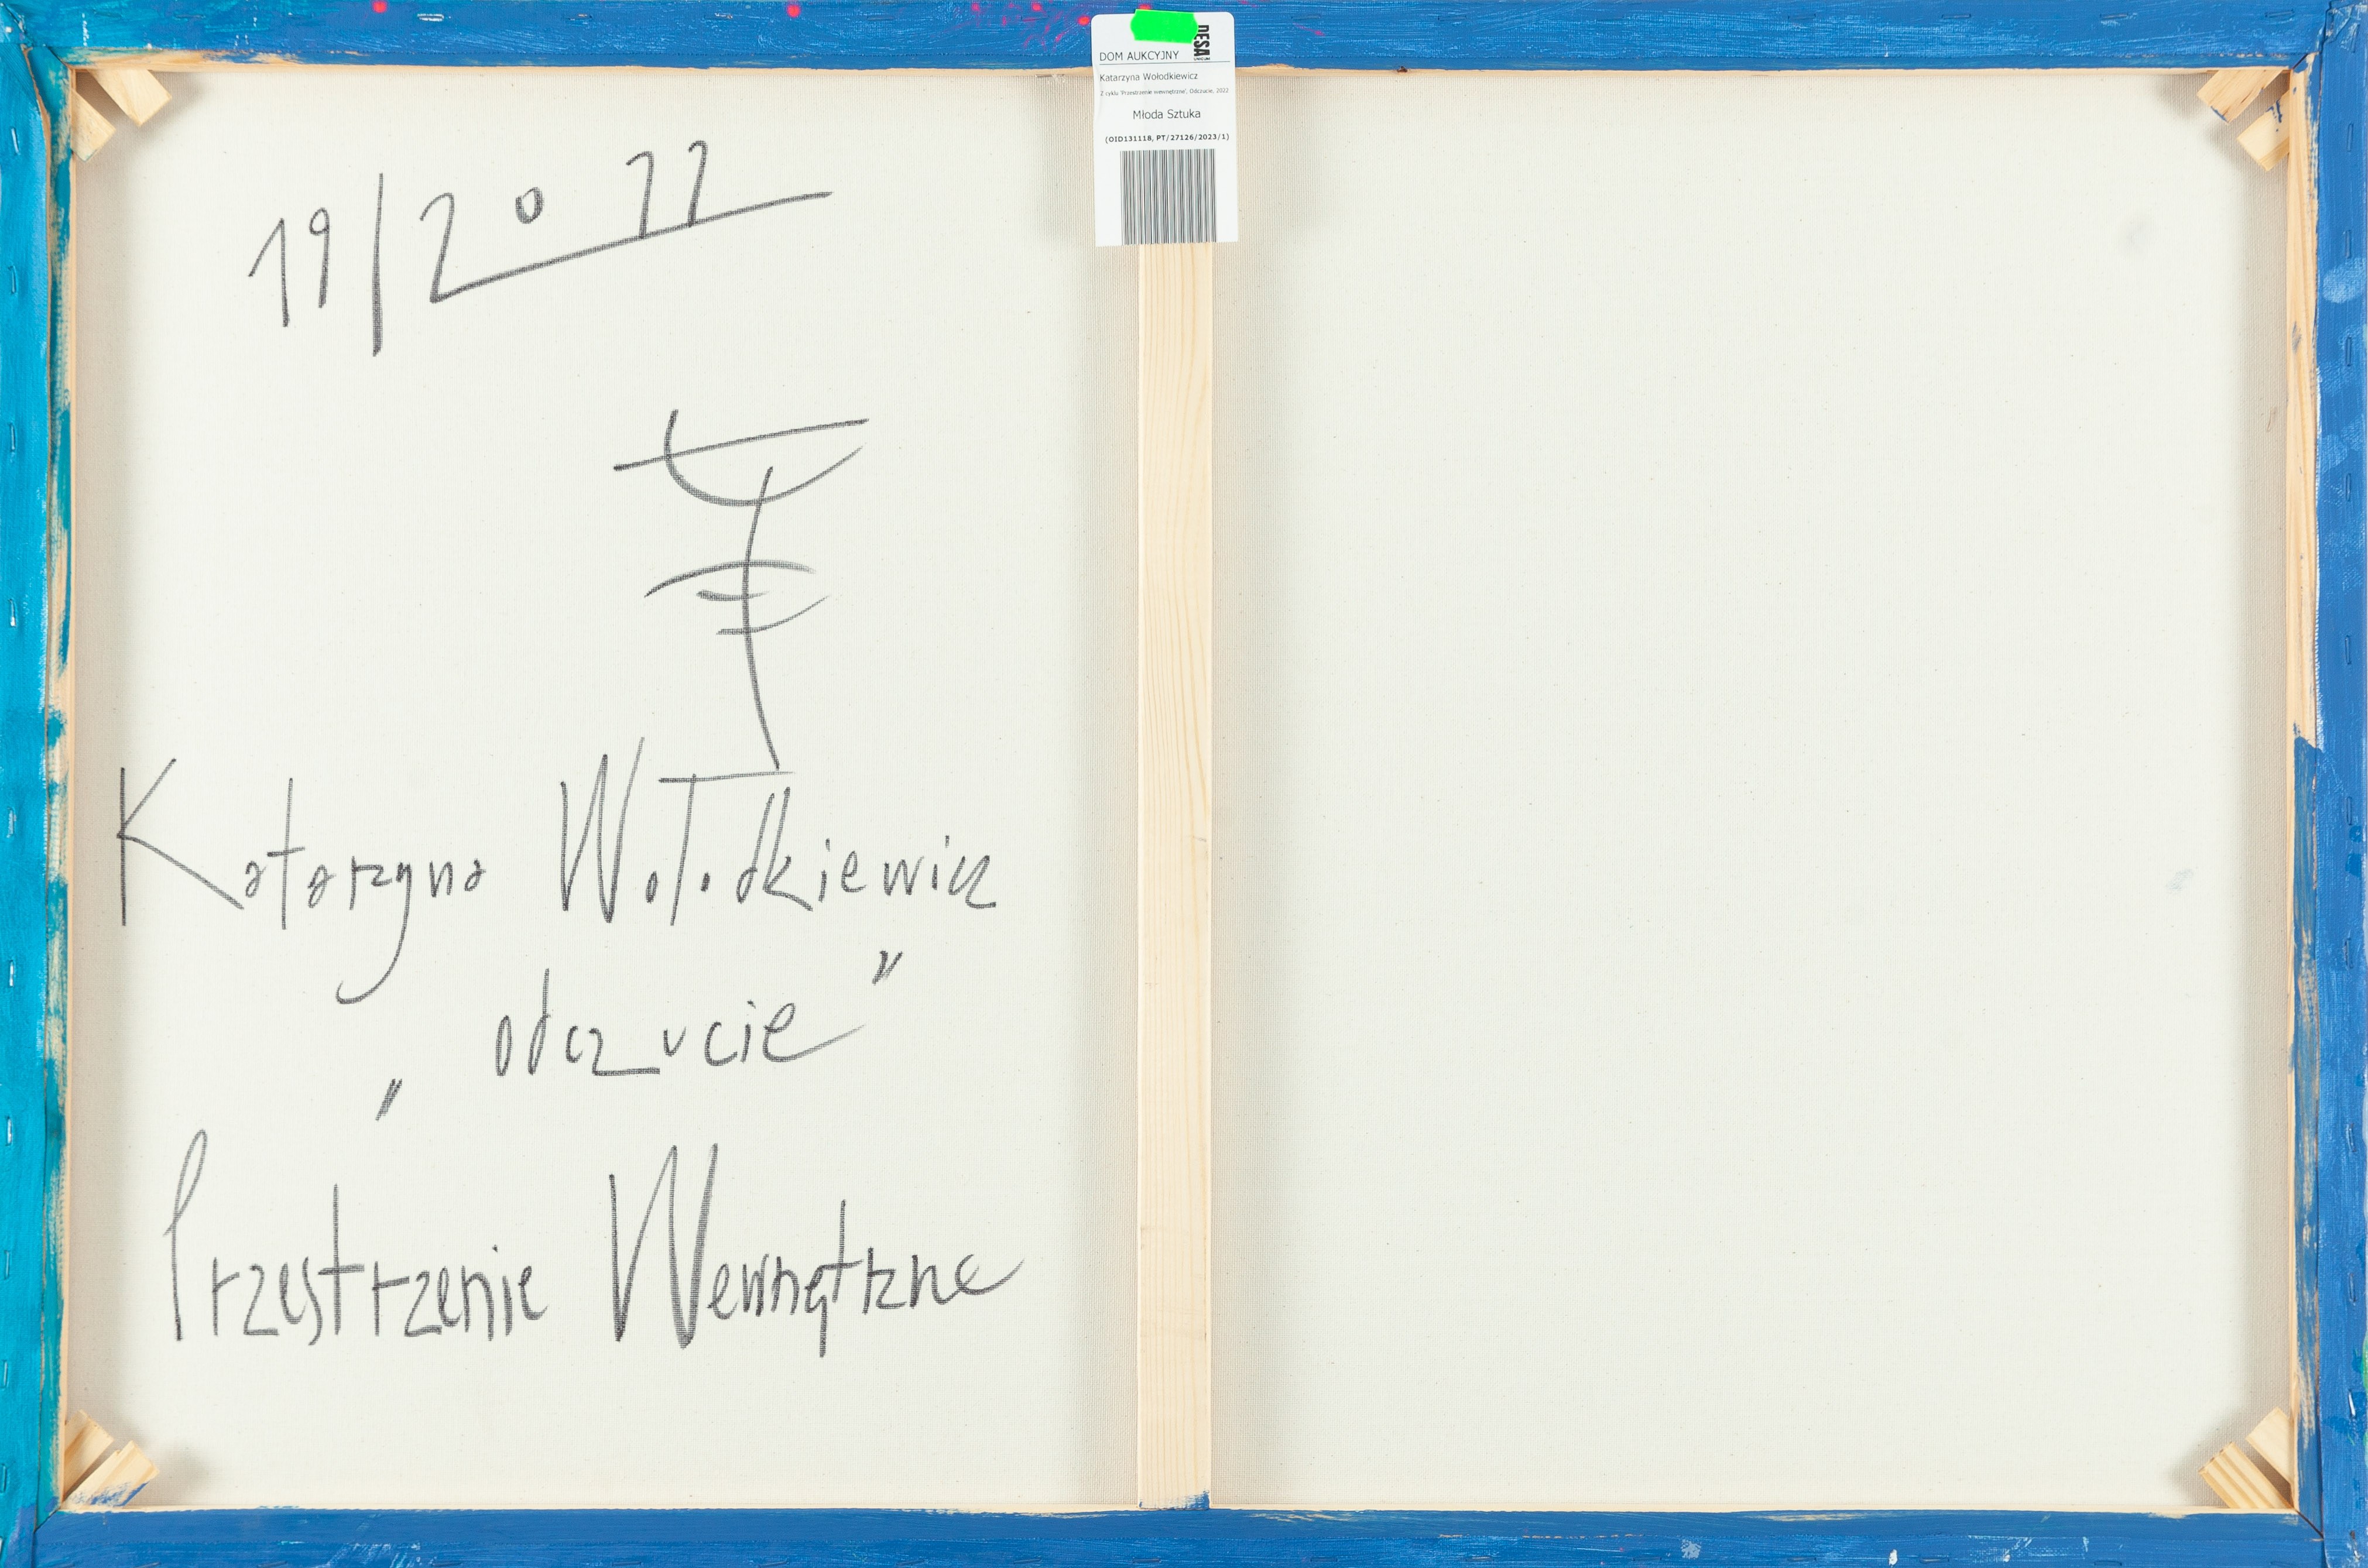 19/2022
Katarzyna Wołodkiewicz
"odczucie"
Przestrzenie Wewnętrzne
DESA
UNICUM
DOM AUKCYJNY
Katarzyna Wołodkiewicz
Z cyklu 'Przestrzenie wewnętrzne', Odczucie, 2022
Młoda Sztuka
(OID131118, PT/27126/2023/1)